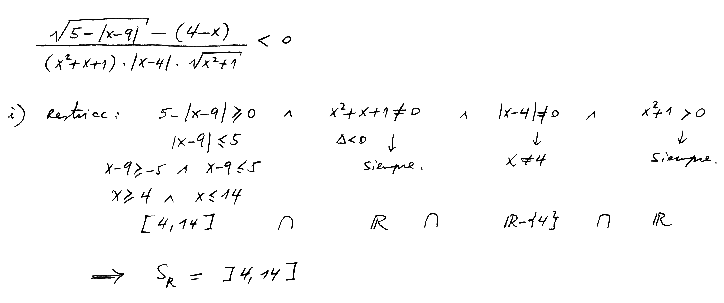 √(5-|x-9|) - (4-x)
(x²+x+1) · |x-4| · √(x²+1) < 0
i) Restricc: 5-|x-9| ≥ 0 ∧ x²+x+1 ≠ 0 ∧ |x-4| ≠ 0 ∧ x²+1 > 0
|x-9| ≤ 5 Δ<0 ↓ ↓ ↓
x-9 ≥ -5 ∧ x-9 ≤ 5 siempre. x ≠ 4 siempre.
x ≥ 4 ∧ x ≤ 14
[4, 14] ∩ ℝ ∩ ℝ-{4} ∩ ℝ
⟹ S_R = ]4, 14]